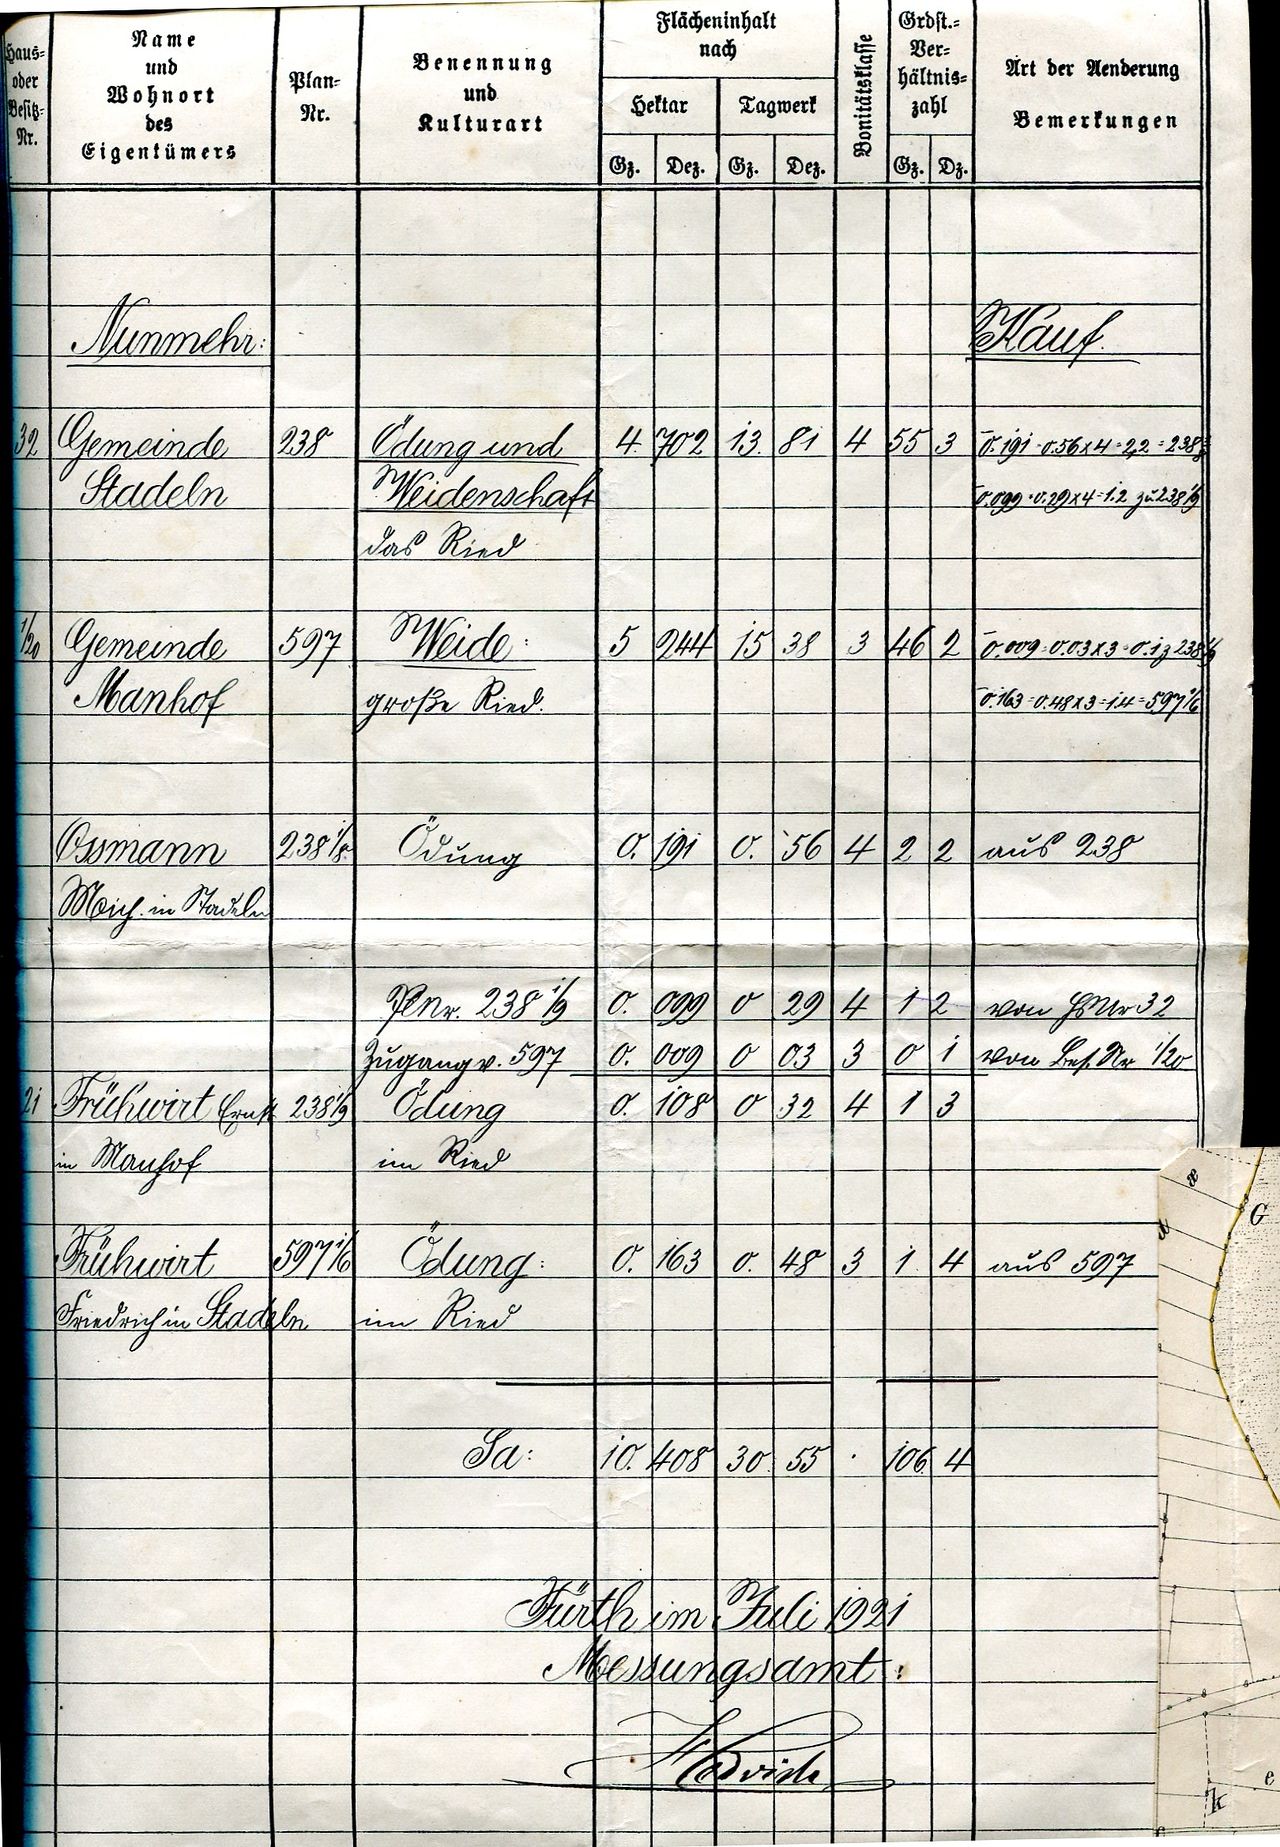 Haus- oder Besitz-Nr.
Name und Wohnort des Eigentümers
Plan-Nr.
Benennung und Kulturart
Flächeninhalt nach
Hektar
Tagwerk
Gz. Dez. Gz. Dez.
Bonitätsklasse
Grdst.-Ver-hältnis-zahl
Gz. Dz.
Art der Aenderung
Bemerkungen
Nunmehr: Kauf.
32 Gemeinde 238 Ödung und 4. 702 13. 81 4 55 3 0.191 = 0.56x4 = 2,2 = 238 1/8
Stadeln Weidenschaft 0.099 = 0.29x4 = 1.2 zu 238 1/9
das Ried
1/20 Gemeinde 597 Weide: 5 244 15 38 3 46 2 0.009 = 0.03x3 = 0.1 z 238 1/9
Manhof große Ried. 0.163 = 0.48x3 = 1.4 = 597 1/6
Ossmann 238 1/8 Ödung 0. 191 0. 56 4 2 2 aus 238
Mich. in Stadeln
PlNr. 238 1/9 0. 099 0 29 4 1 2 von HsNr 32
Zugang v. 597 0. 009 0 03 3 0 1 von Bes. Nr 1/20
21 Frühwirt Ernst 238 1/9 Ödung 0. 108 0 32 4 1 3
in Manhof im Ried
Frühwirt 597 1/6 Ödung: 0. 163 0. 48 3 1 4 aus 597
Friedrich in Stadeln im Ried
Sa: 10. 408 30 55 . 106 4
Fürth im Juli 1921
Messungsamt:
G
k
e